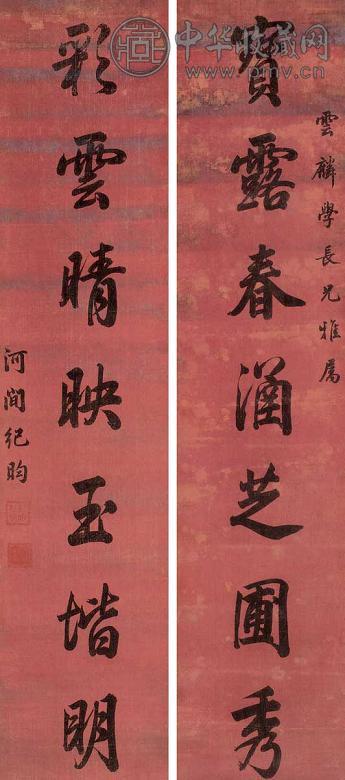 雲麟學長兄雅屬
寶露春涵芝圃秀
彩雲晴映玉堦明
河間紀昀
中华收藏网
www.pmv.cn